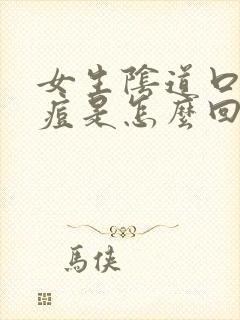 女生陰道口
痘是怎麼回
馬俠